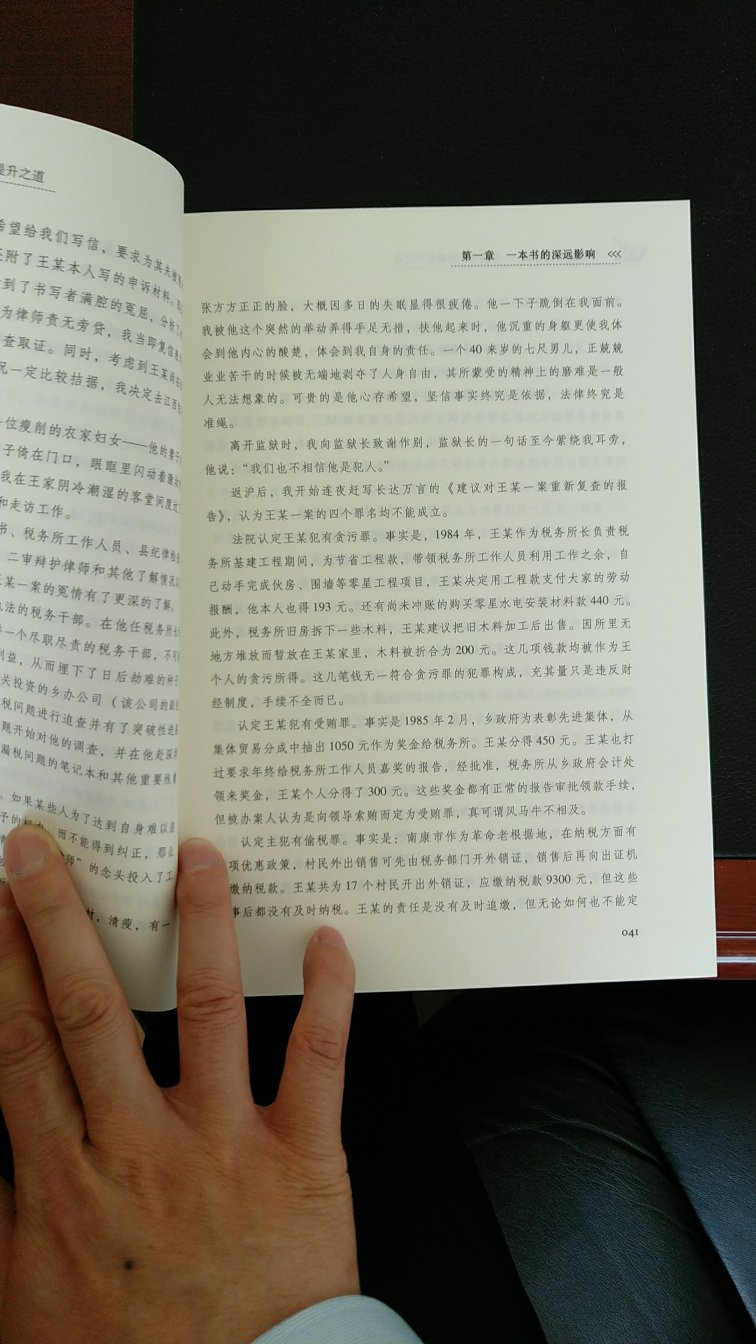 提升之道
希望给我们写信，要求为其夫
还附了王某本人写的申诉材料。
到了书写者满腔的冤屈，分析了
为律师责无旁贷，我当即复信
查取证。同时，考虑到王某
况一定比较拮据，我决定去江西
一位瘦削的农家妇女——他的妻子
子倚在门口，眼眶里闪动着激
我在王家阴冷潮湿的客堂间度过
和走访工作。
书、税务所工作人员、县纪律检
二审辩护律师和其他了解情况
王某一案的冤情有了更深的了解。
执法的税务干部。在他任税务所长
一个尽职尽责的税务干部，不可
利益，从而埋下了日后劫难的种子
关投资的乡办公司（该公司的副
税问题进行追查并有了突破性进
题开始对他的调查，并在他赴深
漏税问题的笔记本和其他重要线索
。如果某些人为了达到自身难以启
而不能得到纠正，那么
师”的念头投入了工
村，清瘦，有一
第一章 一本书的深远影响 <<<
张方方正正的脸，大概因多日的失眠显得很疲倦。他一下子跪倒在我面前。
我被他这个突然的举动弄得手足无措，扶他起来时，他沉重的身躯更使我体
会到他内心的酸楚，体会到我自身的责任。一个 40 来岁的七尺男儿，正兢兢
业业苦干的时候被无端地剥夺了人身自由，其所蒙受的精神上的磨难是一般
人无法想象的。可贵的是他心存希望，坚信事实终究是依据，法律终究是
准绳。
离开监狱时，我向监狱长致谢作别，监狱长的一句话至今萦绕我耳旁，
他说：“我们也不相信他是犯人。”
返沪后，我开始连夜赶写长达万言的《建议对王某一案重新复查的报
告》，认为王某一案的四个罪名均不能成立。
法院认定王某犯有贪污罪。事实是，1984 年，王某作为税务所长负责税
务所基建工程期间，为节省工程款，带领税务所工作人员利用工作之余，自
己动手完成伙房、围墙等零星工程项目，王某决定用工程款支付大家的劳动
报酬，他本人也得 193 元。还有尚未冲账的购买零星水电安装材料款 440 元。
此外，税务所旧房拆下一些木料，王某建议把旧木料加工后出售。因所里无
地方堆放而暂放在王某家里，木料被折合为 200 元。这几项钱款均被作为王
个人的贪污所得。这几笔钱无一符合贪污罪的犯罪构成，充其量只是违反财
经制度，手续不全而已。
认定王某犯有受贿罪。事实是 1985 年 2 月，乡政府为表彰先进集体，从
集体贸易分成中抽出 1050 元作为奖金给税务所。王某分得 450 元。王某也打
过要求年终给税务所工作人员嘉奖的报告，经批准，税务所从乡政府会计处
领来奖金，王某个人分得了 300 元。这些奖金都有正常的报告审批领款手续，
但被办案人认为是向领导索贿而定为受贿罪，真可谓风马牛不相及。
认定主犯有偷税罪。事实是：南康市作为革命老根据地，在纳税方面有
项优惠政策，村民外出销售可先由税务部门开外销证，销售后再向出证机
缴纳税款。王某共为 17 个村民开出外销证，应缴纳税款 9300 元，但这些
事后都没有及时纳税。王某的责任是没有及时追缴，但无论如何也不能定
041